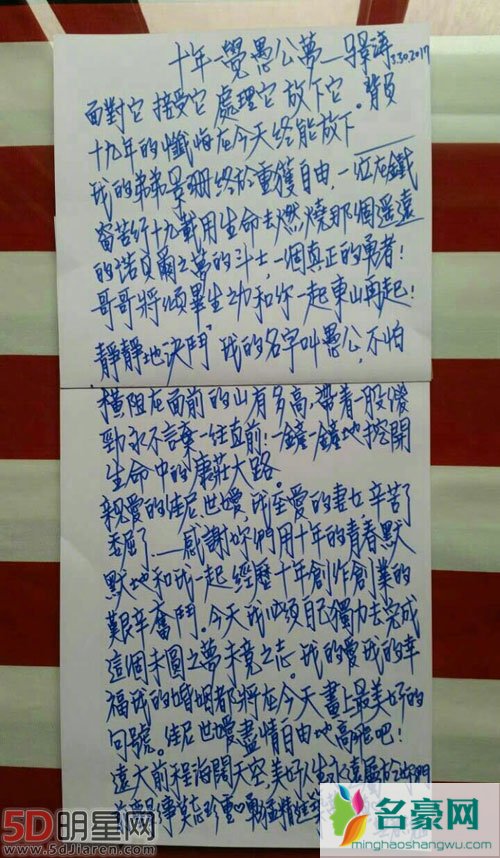 十年一覺愚公夢—景濤 3.30.2017
面對它 接受它 處理它 放下它。背負
十九年的懺悔在今天终能放下——
我的弟弟景珊終於重獲自由,一位在鐵
窗苦行十九載用生命去燃燒那個遙遠
的諾貝爾之夢的斗士,一個真正的勇者!
哥哥將傾畢生之力和你一起東山再起!
靜靜地決鬥"我的名字叫愚公,不怕
橫阻在面前的山有多高,帶着一股傻
勁永不言棄一往直前!一鏟一鏟地挖開
生命中的康莊大路。
親愛的佳尼世嬡,我至愛的妻女,辛苦了
委屈了——感謝妳們用十年的青春默
默地和我一起經歷十年創作創業的
艱辛奮鬥。今天我必須自己獨力去完成
這個未圓之夢未竟之志。我的愛我的幸
福我的婚姻都將在今天畫上最美好的
句號。佳尼世嬡盡情自由地高飛吧!
遠大前程海闊天空,美好人生永遠屬於妳們
事莫忘珍重勇猛精進
5D明星网
www.5djiaren.com
名豪网
minghaoshangwu.com